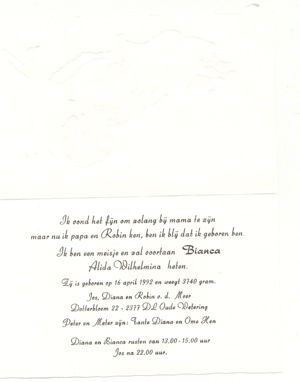 Ik vond het fijn om zolang bij mama te zijn
maar nu ik papa en Robin ken, ben ik blij dat ik geboren ben
Ik ben een meisje en zal voortaan Bianca
Alida Wilhelmina heten.
Zij is geboren op 16 april 1992 en weegt 3740 gram.
Jos, Diana en Robin v. d. Meer
Dotterbloem 22 - 2377 DL Oude Wetering
Peter en Meter zijn: Tante Diana en Ome Hen
Diana en Bianca rusten van 13.00 - 15.00 uur
Jos na 22.00 uur.